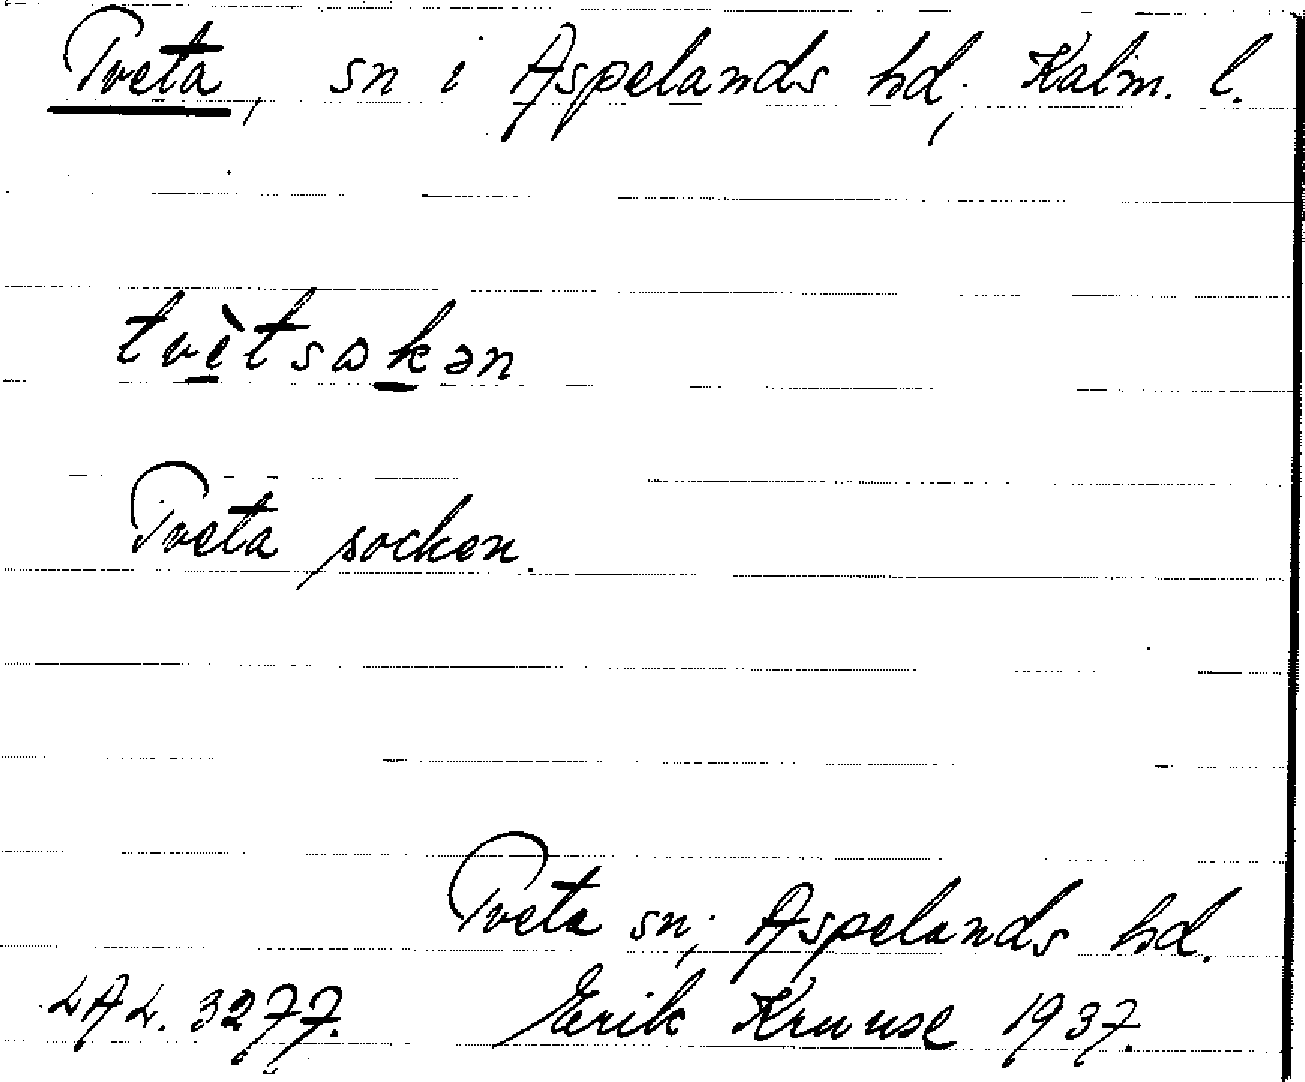 Tveta, sn i Aspelands hd, Kalm. l.
tvètsωkən
Tveta socken.
Tveta sn, Aspelands hd.
LAL. 3277. Erik Kruuse 1937.